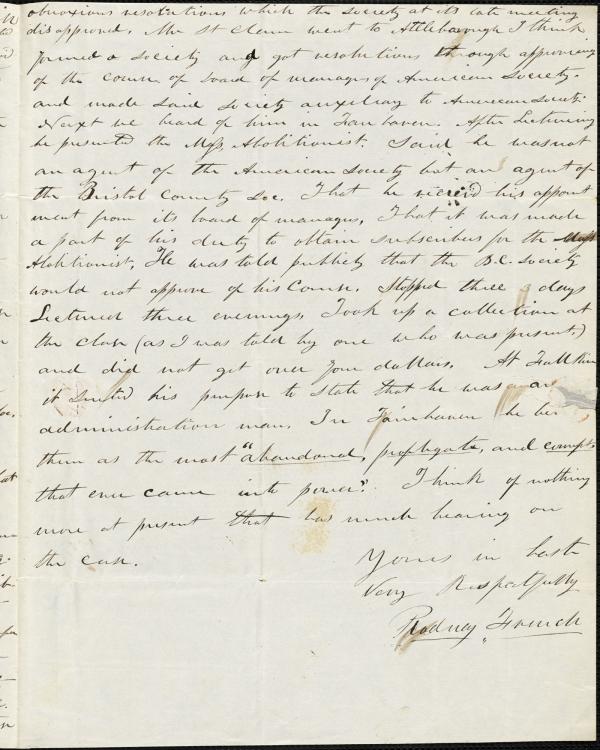 obnoxious resolutions which the society at its late meeting
disapproved. Mr St Clair went to Attleborough I think
formed a society and got resolutions through approving
of the course of board of managers of American Society.
and made said society auxiliary to American Society.
Next we heard of him in Fairhaven. After Lecturing
he presented the Mass Abolitionist. Said he was not
an agent of the American Society but an agent of
the Bristol County Soc. That he recievd his appoint
ment from its board of managers, That it was made
a part of his duty to obtain subscribers for the Mass
Abolitionist. He was told publicly that the B.C. Society
would not approve of his Course. Stopped three days
Lectured three evenings. Took up a collection at
the close (as I was told by one who was present.)
and did not get over four dollars. At Fall River
it suited his purpose to state that he was an
administration man. In Fairhaven he
them as the most "abandoned, profligate, and corrupt
that ever came into power". I think of nothing
more at present that has much bearing on
the case.
Yours in haste
Very Respectfully
Rodney French